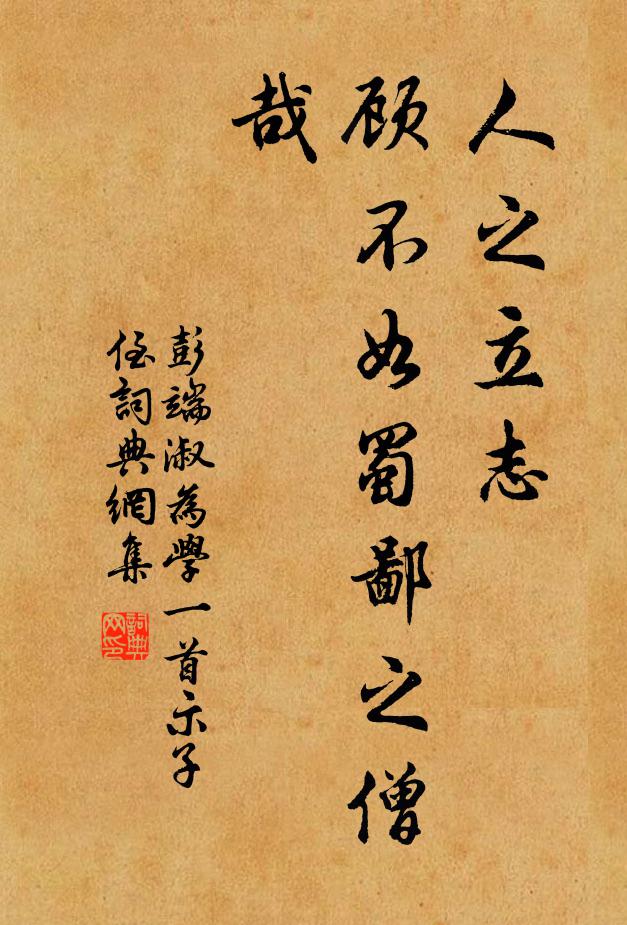 人之立志
顾不如蜀鄙之僧
哉
彭端淑為學一首示子
侄詞典網集
詞典
网印